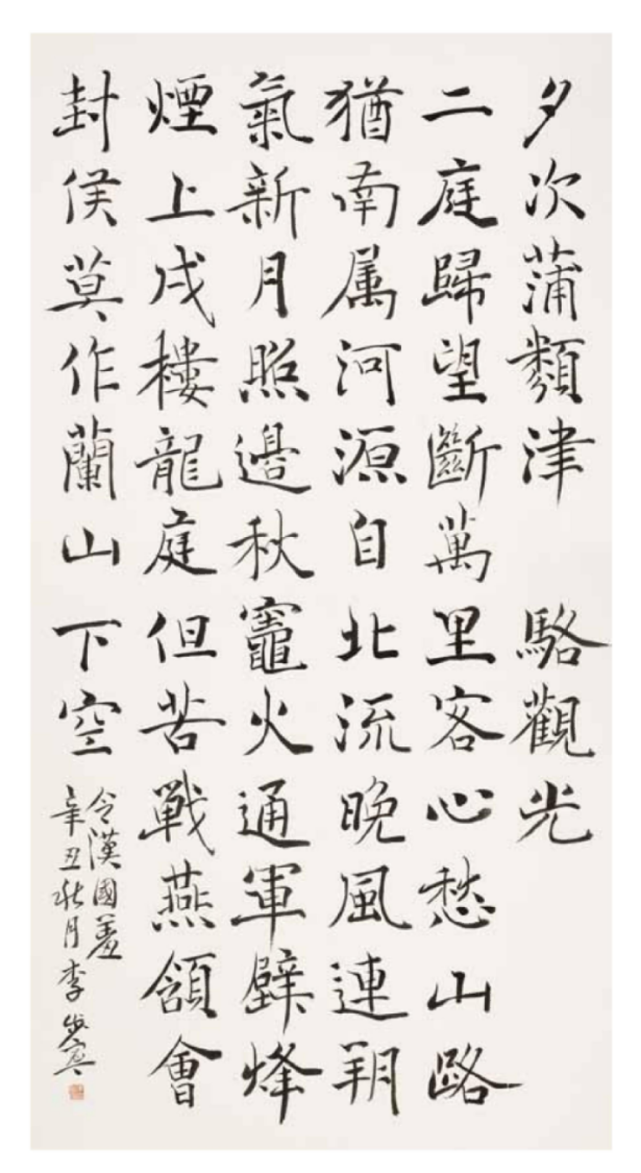 夕次蒲類津 駱觀光
二庭歸望斷萬里客心愁山路
猶南属河源自北流晚風連朔
氣新月照邊秋竈火通軍壁烽
煙上戍樓龍庭但苦戰燕頷會
封侯莫作蘭山下空
令漢國羞
辛丑秋月李